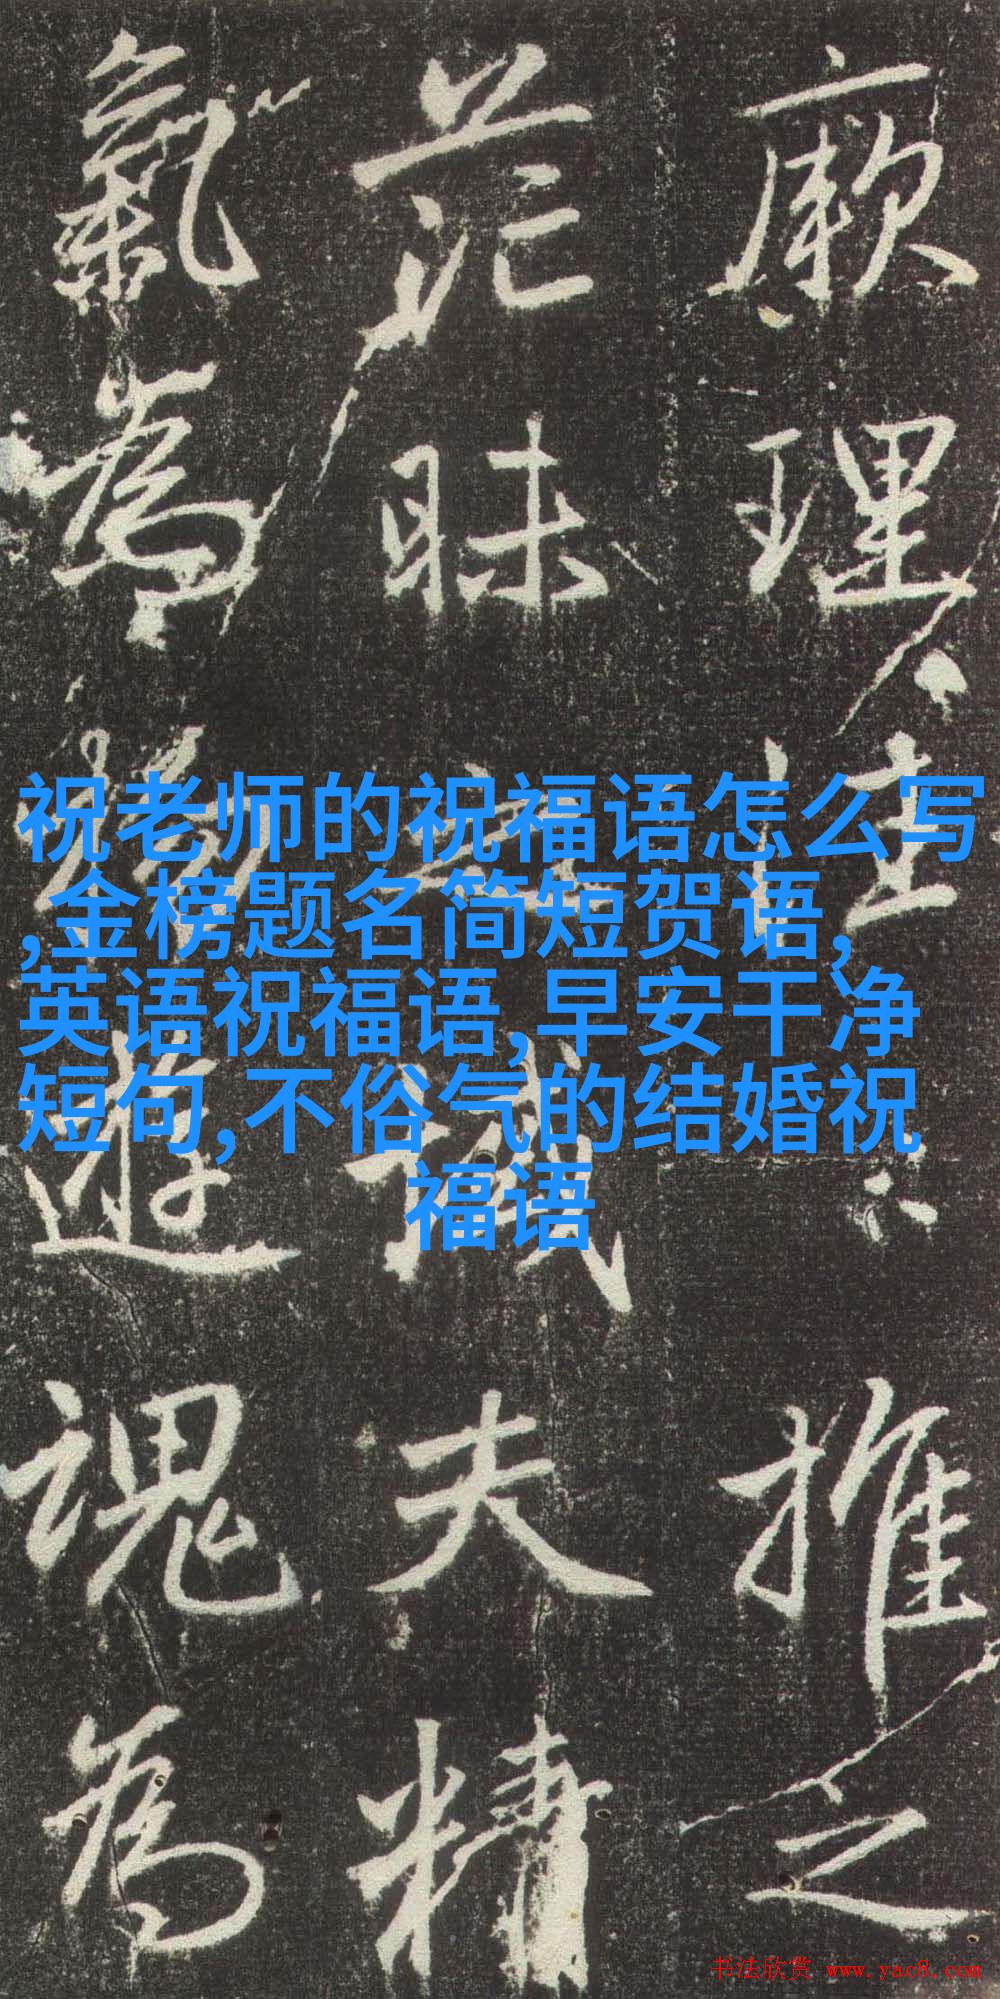 厥理推之
茫昧夫精
氣為遊魂為
祝老师的祝福语怎么写
,金榜题名简短贺语,
英语祝福语,早安干净
短句,不俗气的结婚祝
福语
书法欣赏 www.yac8.com